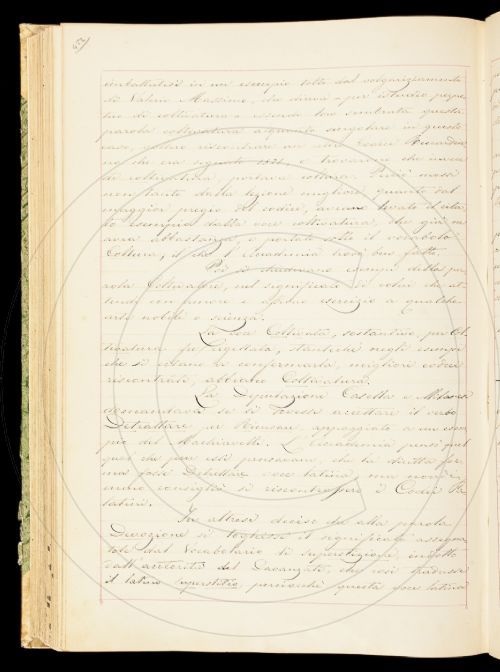 imbattutisi in un esempio tolto dal volgarizzamento
di Valerio Massimo, che diceva per
tivo di coltivatura e essendo loro sembrata questa
parola coltivatura alquanto singolare in questo
caso, vollero riscontrare un altro Codice Riccardia
no che era segnato e trovarono che invece
di coltivatura, portava coltura. Perciò mossi
non tanto dalla lezione migliore quanto dal
maggior pregio del codice, avevano levato il cita
to esempio dalla voce coltivatura, che già n'
avea abbastanza, e portato sotto il vocabolo
Coltura, il che l'Accademia trovò ben fatto.
Poi si chiedevano esempi della pa
rola Coltivatore, nel significato di colui che at
tende con amore e assiduo esercizio a qualche
arte nobile o scienza.
La voce Coltivata, sostantivo, per Col
tivatura fu rigettata, stantechè negli esempi
che si recano a confermarla, migliori codici
riscontrati, abbiano Coltivatura.
La Deputazione Casella e Milanesi
domandava se si dovesse accettare il verbo
Detrattare per Ricusare, appoggiato a un esem
pio del Machiavelli. L'Accademia pensò quel
che pure essi pensavano, che la diritta for
ma fosse Detrattare voce latina, ma non di
meno consigliò si riscontrassero i Codici Pa
latini.
Fu altresì deciso che alla parola
Devozione si togliesse il significato assegna
tole dal Vocabolario di superstizione, indotto
dall'autorità del Davanzati, che così tradusse
il latino superstitio, perciocchè questa voce latina